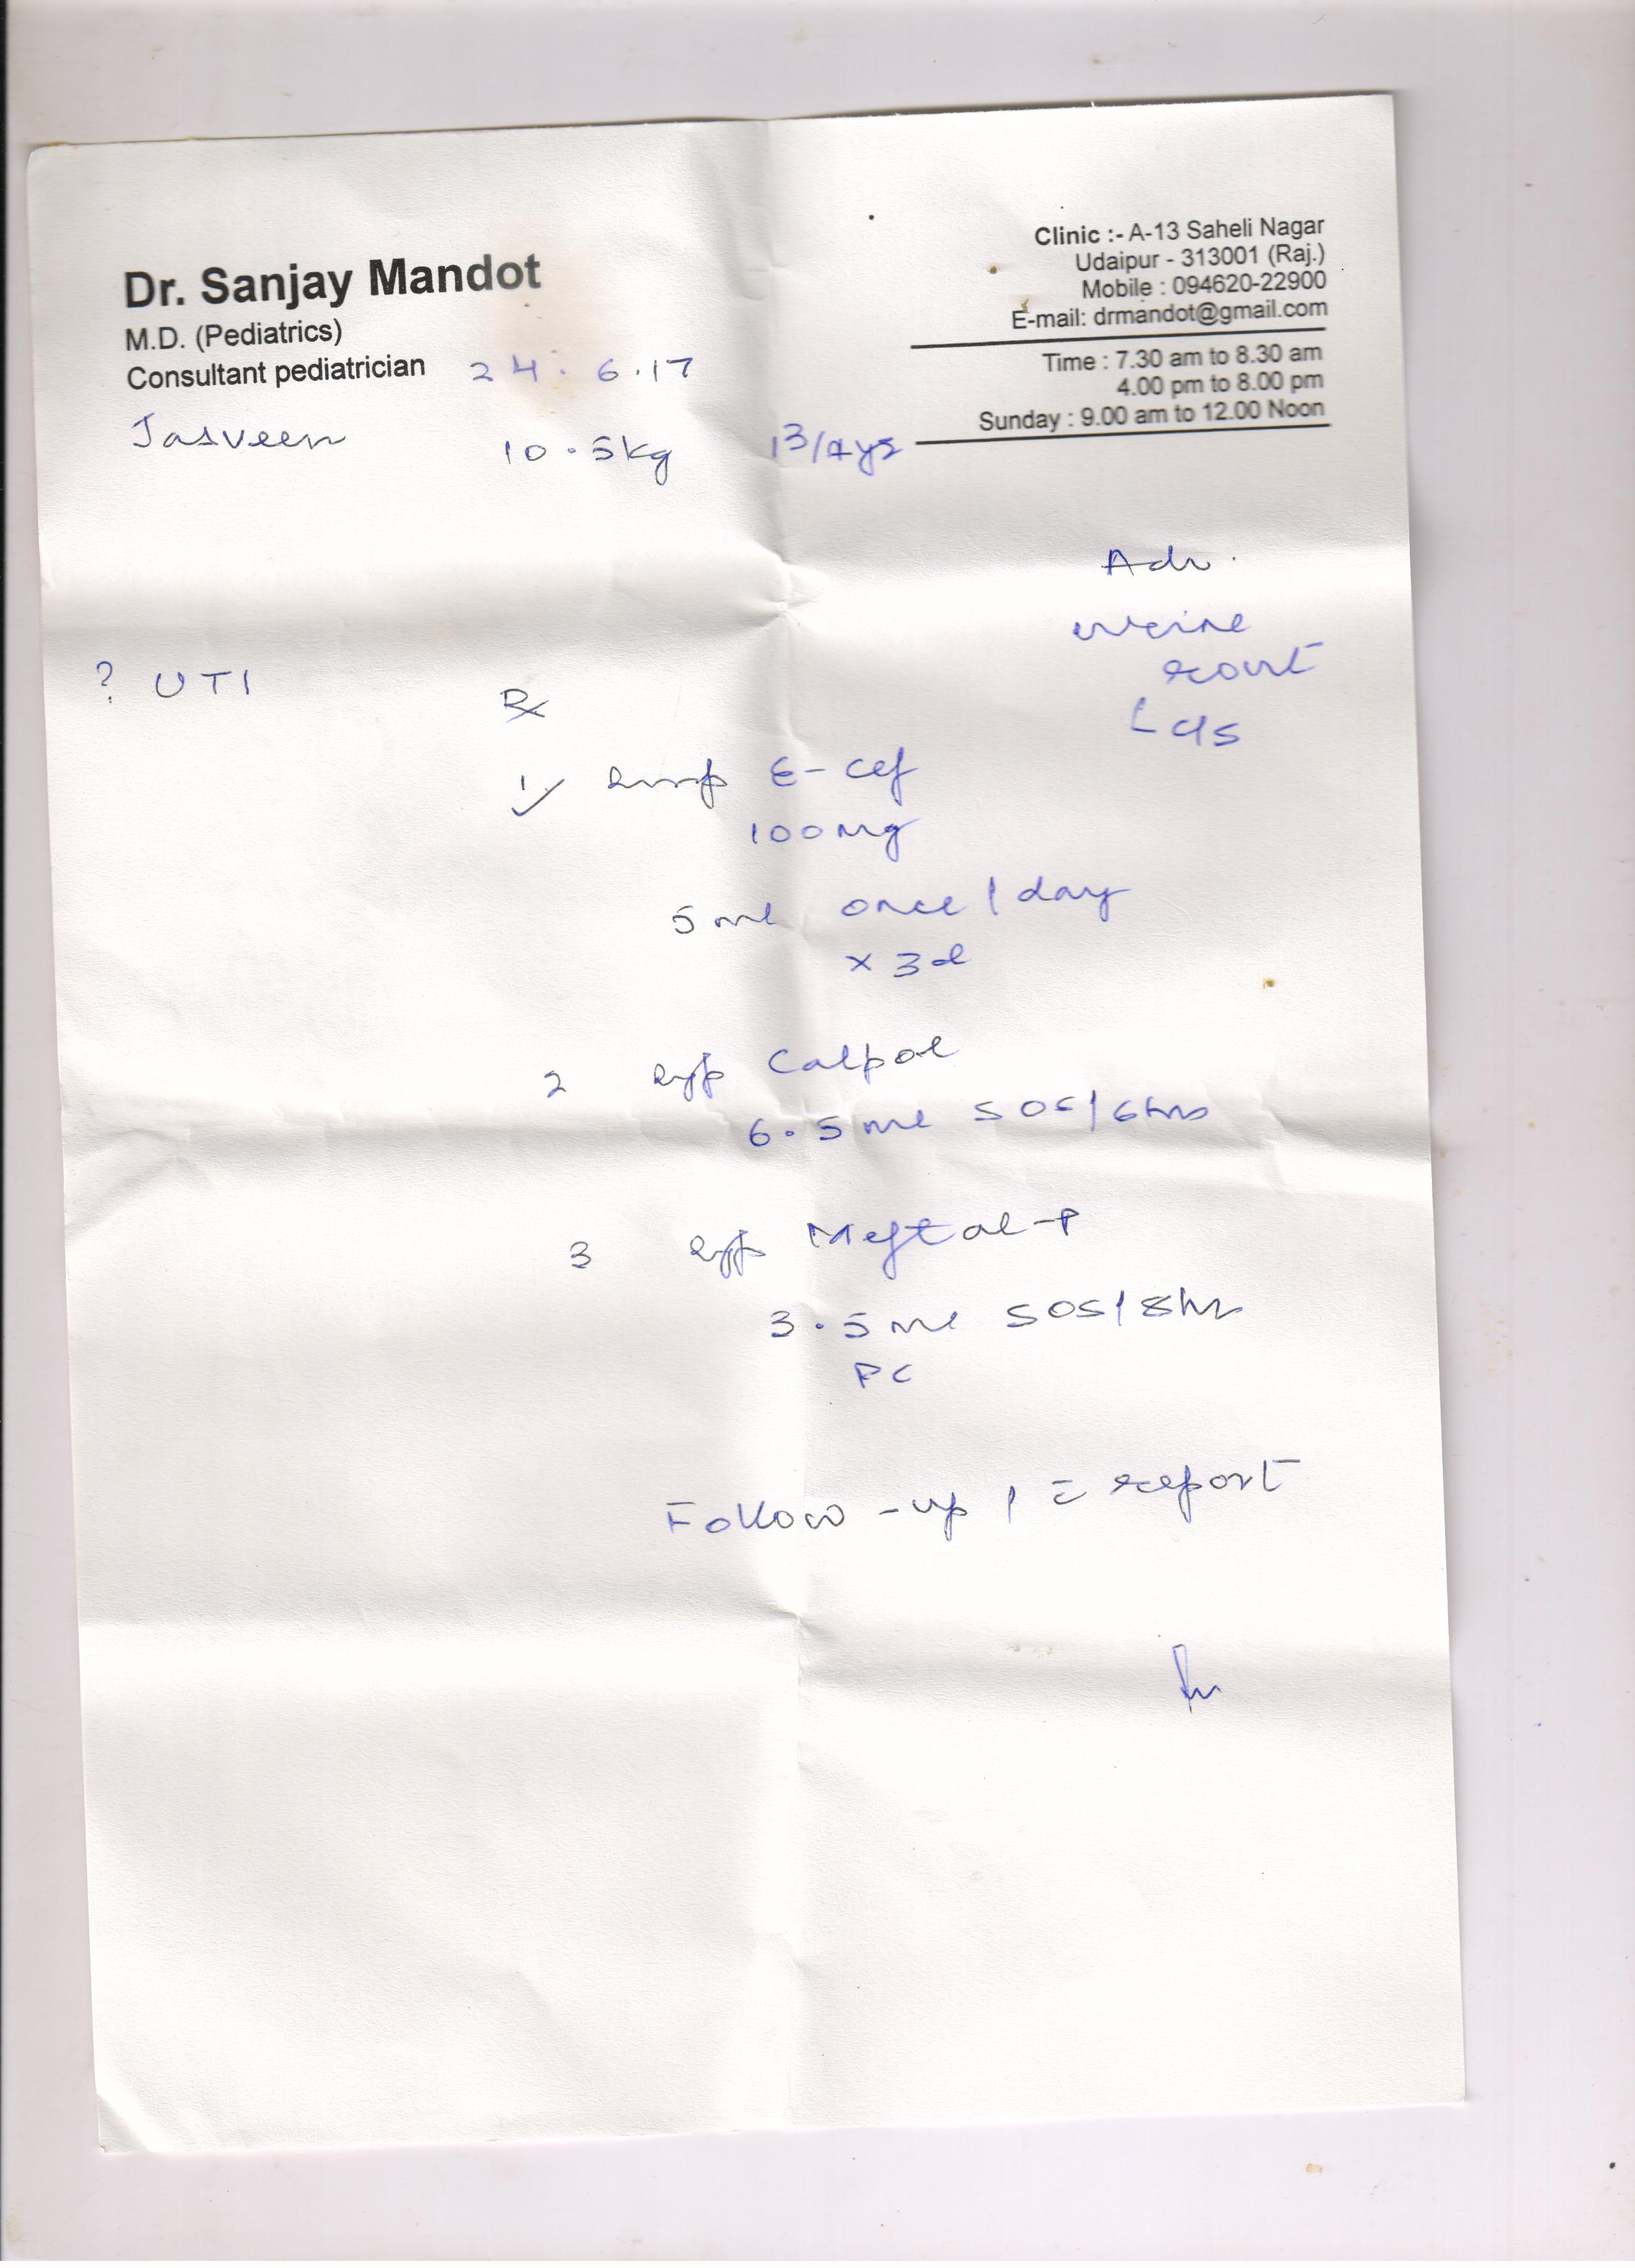 Dr. Sanjay Mandot
M.D. (Pediatrics)
Consultant pediatrician
24.6.17
Clinic :- A-13 Saheli Nagar
Udaipur - 313001 (Raj.)
Mobile : 094620-22900
E-mail: drmandot@gmail.com
Time : 7.30 am to 8.30 am
4.00 pm to 8.00 pm
Sunday : 9.00 am to 12.00 Noon
Jasveen 10.5kg
Adv.
urine
? UTI
℞
1 E-cef
100mg
5 ml once/day
x 3d
2 syp Calpol
6.5ml SOS/6hrs
3 syp Meftal-P
3.5ml SOS/8hr
PC
Follow-up report